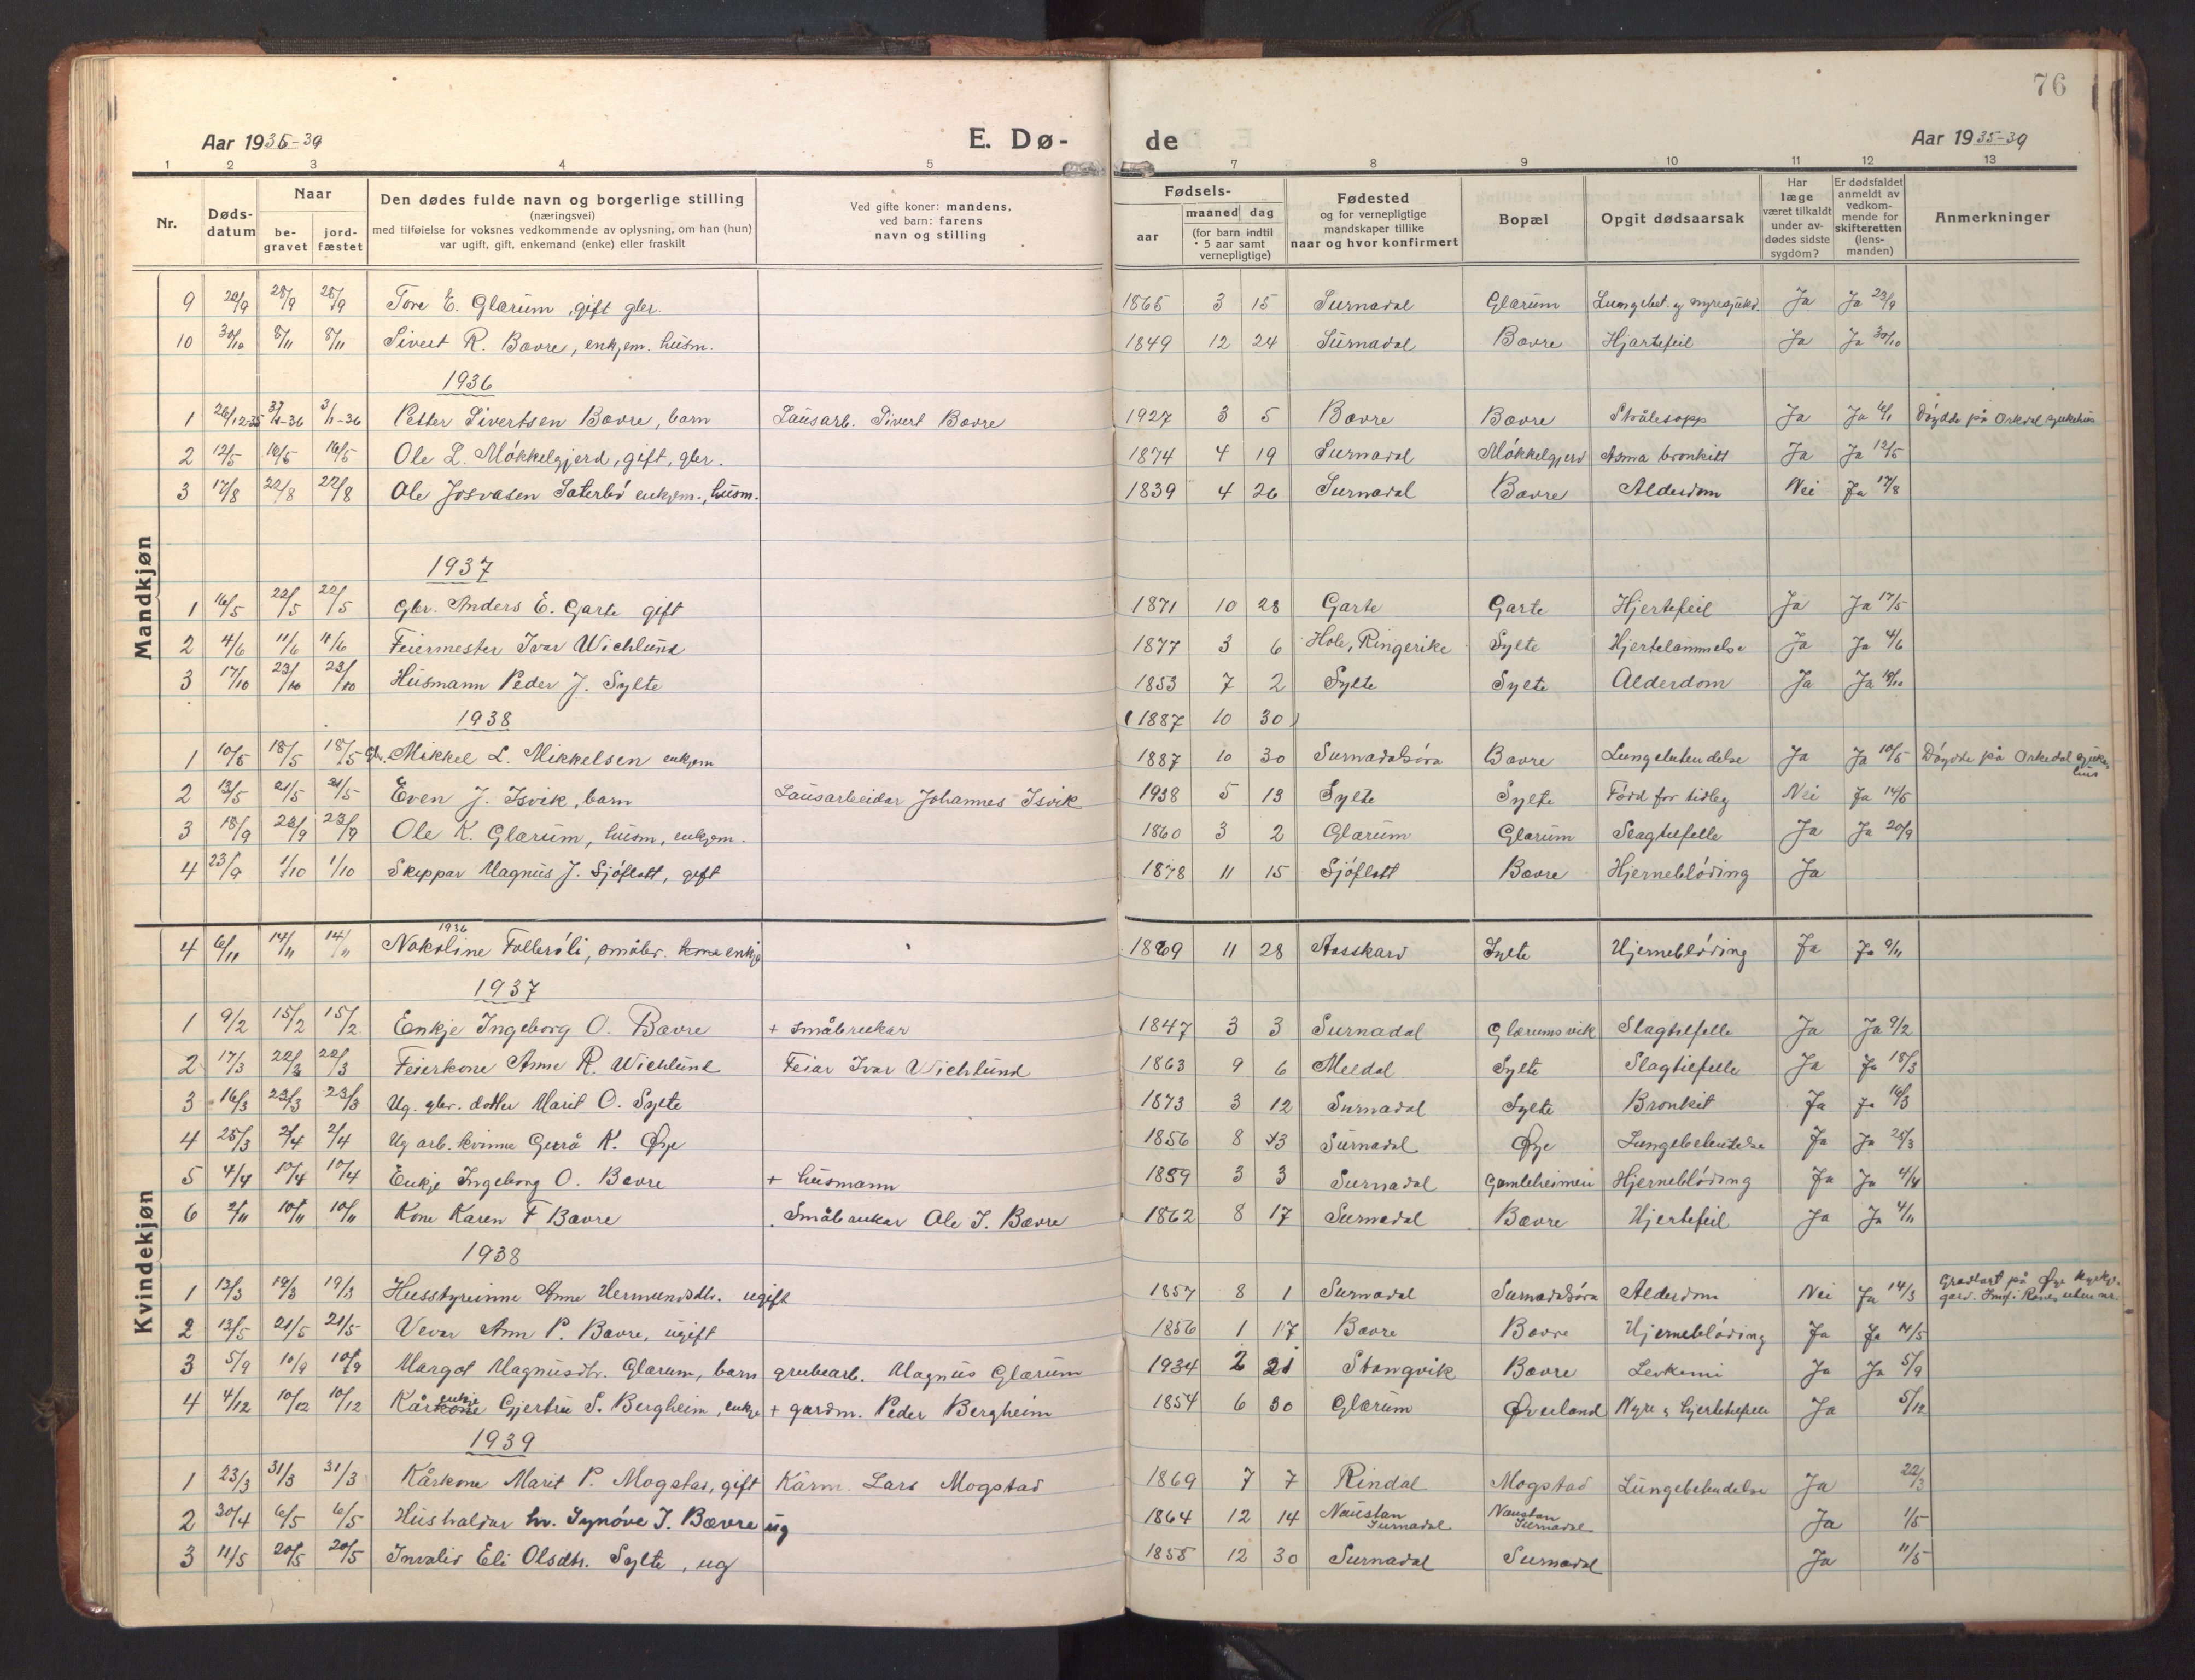 76
Aar 1935-39 E. Dø- de Aar 1935-39
1 2 3 4 5 7 8 9 10 11 12 13
Nr. Døds-datum Naar be-gravet jord-fæstet Den dødes fulde navn og borgerlige stilling (næringsvei) med tilføielse for voksnes vedkommende av oplysning, om han (hun) var ugift, gift, enkemand (enke) eller fraskilt Ved gifte koner: mandens, ved barn: farens navn og stilling Fødsels- aar maaned dag (for barn indtil 5 aar samt vernepligtige) Fødested og for vernepligtige mandskaper tillike naar og hvor konfirmert Bopæl Opgit dødsaarsak Har læge været tilkaldt under av-dødes sidste sygdom? Er dødsfaldet anmeldt av vedkom-mende for skifteretten (lens-manden) Anmerkninger
Mandkjøn
9 20/9 28/9 28/9 Tore E. Glærum, gift gbr. 1865 3 15 Surnadal Glærum Lungebet. og nyresjukd. Ja Ja 23/9
10 30/10 8/11 8/11 Sivert R. Bævre, enkjem. husm. 1849 12 24 Surnadal Bævre Hjartefeil Ja Ja 30/10
1936
1 26/12-35 3/1-36 3/1-36 Petter Sivertsen Bævre, barn Lausarb. Sivert Bævre 1927 3 5 Bævre Bævre Strålesopp Ja Ja 6/1 Døydde på Orkdal sjukehus
2 12/5 16/5 16/5 Ole L. Møkkelgjerd, gift, gbr. 1874 4 19 Surnadal Møkkelgjerd Asma bronkitt Ja Ja 12/5
3 17/8 22/8 22/8 Ole Josvasen Sæterbø enkjem., husm. 1839 4 26 Surnadal Bævre Alderdom Nei Ja 17/8
1937
1 16/5 22/5 22/5 Gbr. Anders E. Garte gift 1871 10 28 Garte Garte Hjertefeil Ja Ja 17/5
2 4/6 11/6 11/6 Feiermester Ivar Wichlund 1877 3 6 Hole, Ringerike Sylte Hjertelammelse Ja Ja 4/6
3 17/10 23/10 23/10 Husmann Peder J. Sylte 1853 7 2 Sylte Sylte Alderdom Ja Ja 18/10
1938 (1887 10 30)
1 10/5 18/5 18/5 Gbr. Mikkel L. Mikkelsen enkjem 1887 10 30 Surnadalsøra Bævre Lungebetendelse Ja Ja 10/5 Døydde på Orkedal sjukehus
2 13/5 21/5 21/5 Even J. Isvik, barn Lausarbeidar Johannes Isvik 1938 5 13 Sylte Sylte Fødd for tidleg Nei Ja 14/5
3 18/9 23/9 23/9 Ole K. Glærum, husm, enkjem. 1860 3 2 Glærum Glærum Slagtilfelle Ja Ja 20/9
4 23/9 1/10 1/10 Skippar Magnus J. Sjøflott, gift 1878 11 15 Sjøflott Bævre Hjernebløding Ja
Kvindekjøn
1936
4 6/11 14/11 14/11 Nokoline Follerøli, småbr. kone enkje 1869 11 28 Aasskard Sylte Hjerneblöding Ja Ja 9/11
1937
1 9/2 15/2 15/2 Enkje Ingeborg O. Bævre + småbrukar 1847 3 3 Surnadal Glærumsvik Slagtilfelle Ja Ja 9/2
2 17/3 22/3 22/3 Feierkone Anne R. Wichlund Feiar Ivar Wichlund 1863 9 6 Meldal Sylte Slagtilfelle Ja Ja 18/3
3 16/3 23/3 23/3 Ug. gbr. dotter Marit O. Sylte 1873 3 12 Surnadal Sylte Bronkit Ja Ja 16/3
4 25/3 2/4 2/4 Ug arb. kvinne Guro K. Øye 1856 8 Surnadal Øye Lungebetendelse Ja Ja 25/3
5 4/4 10/4 10/4 Enkje Ingeborg O. Bævre + husmann 1859 3 3 Surnadal Gamleheimen Hjerneblöding Ja Ja 4/4
6 2/11 10/11 10/11 Kone Karen F Bævre Småbrukar Ole J. Bævre 1862 8 17 Surnadal Bævre Hjertefeil Ja Ja 4/11
1938
1 13/3 19/3 19/3 Husstyrinne Anne Hermundsdtr. ugift 1857 8 1 Surnadal Surnadalsøra Alderdom Nei Ja 14/3 Gravlagt på Øye kyrkjegard. Innf. i Ranes uten nr.
2 13/5 21/5 21/5 Vever Ann P. Bævre, ugift 1856 1 17 Bævre Bævre Hjerneblöding Ja Ja 14/5
3 5/9 10/9 10/9 Margot Magnusdtr. Glærum, barn grubearb. Magnus Glærum 1934 2 21 Stangvik Bævre Levkemi Ja Ja 5/9
4 4/12 10/12 10/12 Kårkone enkje Gjertru S. Bergheim, enkje + gardm. Peder Bergheim 1854 6 30 Glærum Øverland Nyre & hjertetilfelle Ja 5/12
1939
1 23/3 31/3 31/3 Kårkone Marit P. Mogstad, gift Kårm. Lars Mogstad 1869 7 7 Rindal Mogstad Lungebetendelse Ja 22/3
2 30/4 6/5 6/5 Hushaldar Synøve J. Bævre ug 1864 12 14 Naustan Surnadal Naustan Surnadal Ja 1/5
3 11/5 20/5 20/5 Invalid Eli Olsdtr. Sylte, ug 1855 12 30 Surnadal Surnadal Ja 11/5